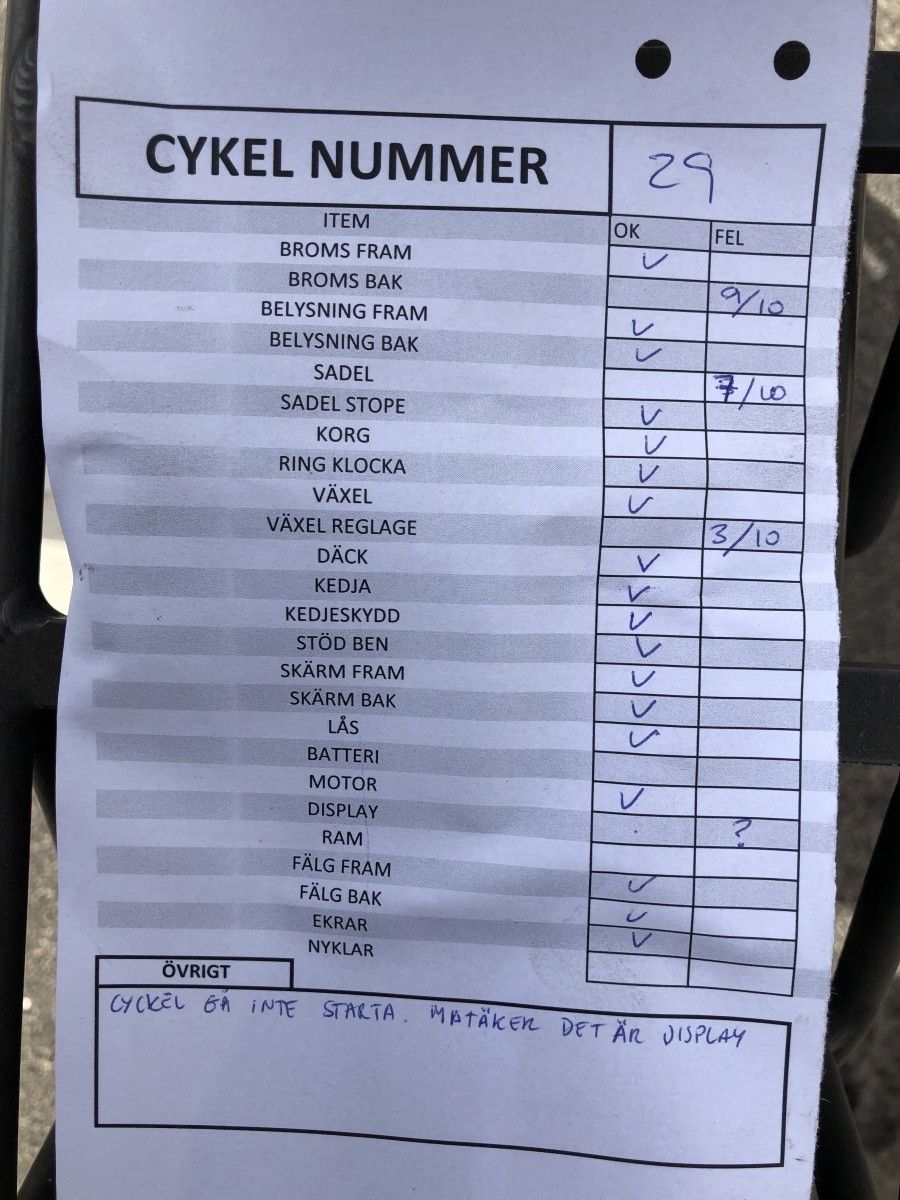 CYKEL NUMMER 29
ITEM OK FEL
BROMS FRAM ✓
BROMS BAK 9/10
BELYSNING FRAM ✓
BELYSNING BAK ✓
SADEL 7/10
SADEL STOPE ✓
KORG ✓
RING KLOCKA ✓
VÄXEL ✓
VÄXEL REGLAGE 3/10
DÄCK ✓
KEDJA ✓
KEDJESKYDD ✓
STÖD BEN ✓
SKÄRM FRAM ✓
SKÄRM BAK ✓
LÅS ✓
BATTERI
MOTOR ✓
DISPLAY ?
RAM
FÄLG FRAM ✓
FÄLG BAK ✓
EKRAR ✓
NYKLAR
ÖVRIGT
CYCKEL GÅ INTE STARTA. DET ÄR DISPLAY